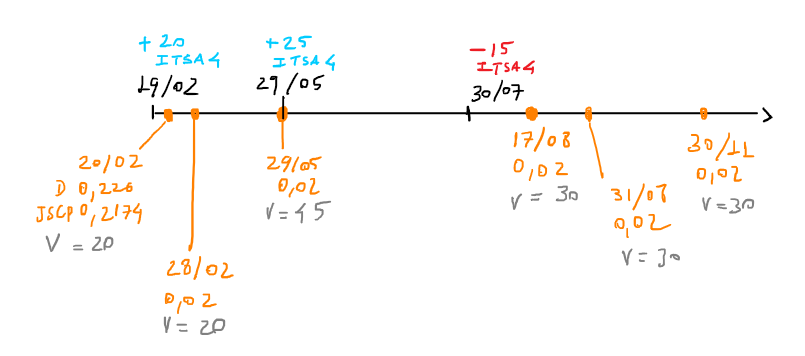 +20
ITSA4
19/02
+25
ITSA4
29/05
-15
ITSA4
30/07
20/02
D 0,226
JSCP 0,2174
V = 20
28/02
0,02
V = 20
29/05
0,02
V = 45
17/08
0,02
V = 30
31/08
0,02
V = 30
30/11
0,02
V = 30